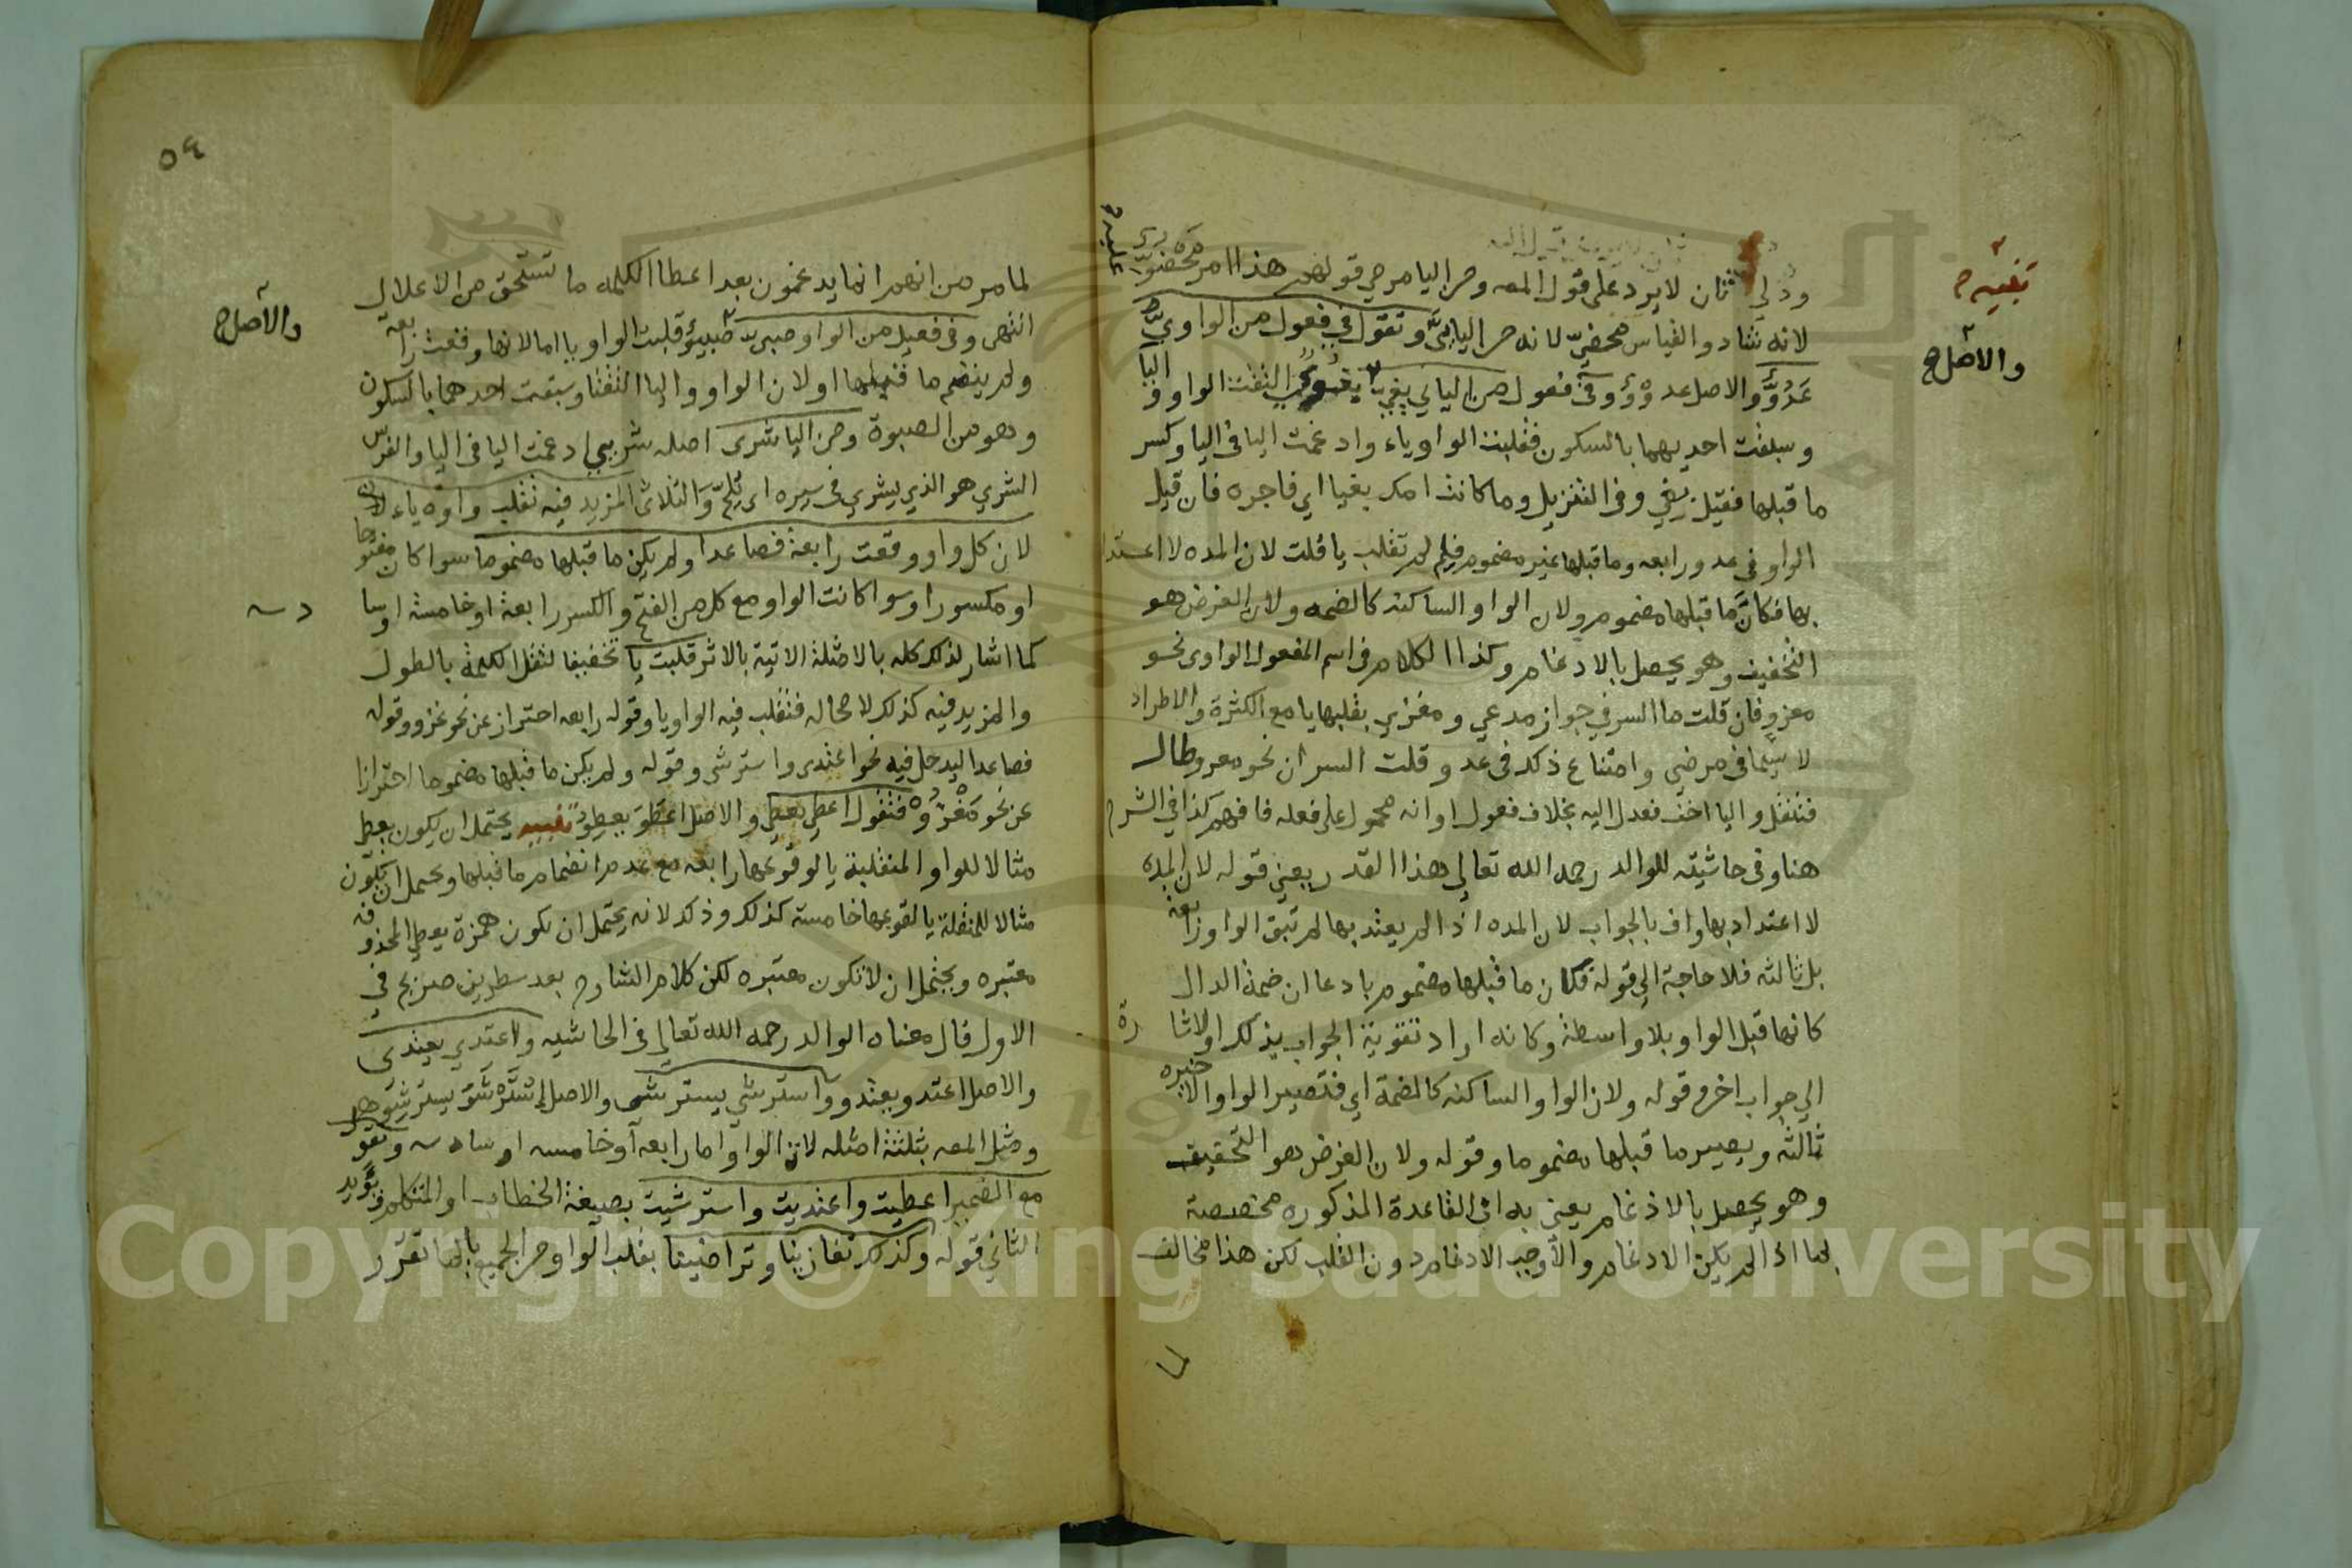 ودلي ثنان لا يرد على قول المصه ومن اليا مرمي قولهم هذا امر ممضو
عليه
لانه شاد والقياس ممضيّ لانه من اليايىّ وتقول في فعول من الواوي
عَدُوّ والاصل عدووٌ وفى فعول من اليائي بغيّ التقت الواو واليا
وسبقت احديهما بالسكون فقلبت الواو ياء وادغمت اليا فى اليا وكسر
ما قبلها فقيل بغي وفى التنزيل وما كانت امك بغيا اي فاجره فان قيل
الواو في عدو رابعه وما قبلها غير مضموم فلم لم تقلب يا قلت لان المده لا اعتدا
بها فكانَّ ما قبلها مضموم ولان الواو الساكنه كالضمه ولان الغرض هو
التخفيف وهو يحصل بالادغام وكذا الكلام فى اسم المفعول الواوى نحو
مغزو فان قلت ما السر في جواز مدعي ومغزي بقلبها يا مع الكثرة والاطراد
لا سيما فى مرضي وامتناع ذكك فى عدو قلت السر ان نحو مغزو طال
فتثقل واليا اخف فعدل اليه بخلاف فعول او انه محمول على فعله فافهم كذا في الشرح
هنا وفى حاشيته للوالد رحمه الله تعالى هذا القدر يعني قوله لان المده
لا اعتداد بها واف بالجواب لان المده اذا لم يعتد بها لم تبق الواو رابعة
بل ثالثه فلا حاجة الى قوله فكان ما قبلها مضموم بادعا ان ضمة الدال
كانها قبل الواو بلا واسطة وكانه اراد تقوية الجواب بذلك او الاشارة
الي جواب اخر وقوله ولان الواو الساكنه كالضمة اي فتصير الواو الاخيره
ثالثه ويصير ما قبلها مضموما وقوله ولان الغرض هو التخفيف
وهو يحصل بالادغام يعني به ان القاعدة المذكوره مخصصة
بما اذا لم يكن الادغام والا وجب الادغام دون القلب لكن هذا مخالف
لما
والاصل ح
٥٤
لما مر من انهم انما يدغمون بعد اعطا الكلمه ما تستحق من الاعلال
انتهى وفى فعيل من الواو صبي قلبت الواو يا اما لانها وقعت رابعة
ولم ينضم ما قبلها او لان الواو واليا التقتا وسبقت احدهما بالسكون
وهو من الصبوة ومن اليا شرى اصله شريي ادغمت اليا فى اليا والفرس
الشري هو الذي يشري فى سيره اى يلجّ والثلاثى المزيد فيه تقلب واوه ياء
لان كل واو وقعت رابعة فصاعدا ولم يكن ما قبلها مضموما سوا كان مفتوحا
او مكسورا وسوا كانت الواو مع كل من الفتح والكسر رابعة او خامسة او سادسه
كما اشار لذلك كله بالامثلة الاتية بالاثر قلبت يا تخفيفا لثقل الكلمة بالطول
والمزيد فيه كذلك لا محاله فتقلب فيه الواو يا وقوله رابعه احتراز عن نحو غزو وقوله
فصاعدا ليدخل فيه نحو اعتدى واسترشى وقوله ولم يكن ما قبلها مضموما احترازا
عن نحو مَغْزُوْ فتقول اعطى يعطي والاصل اعطَوَ يعطِوُ تنبيه يحتمل ان يكون يعطي
مثالا للواو المنقلبة يا لوقوعها رابعه مع عدم انضمام ما قبلها ويحتمل ان يكون
مثالا للمنقلة يا لقوعها خامسة كذلك وذلك لانه يحتمل ان تكون همزة يعطى المحذوفه
معتبره ويحتمل ان لا تكون معتبره لكن كلام الشارح بعد سطرين صريح في
الاول قال معناه الوالد رحمه الله تعالى فى الحاشيه واعتدي يعتدى
والاصل اعتدو يعتدو واسترشي يسترشى والاصل استرشو يسترشو
ومثل المصه بثلثة امثله لان الواو اما رابعه او خامسه او سادسه وتقول
مع الضمير اعطيت واعتديت واسترشيت بصيغة الخطاب او المتكلم ويؤيد
الثاني قوله وكذلك تغازينا وتراضينا بقلب الواو من الجميع يا لما تقرر
والاصل ح
Copyright © King Saud University
1957